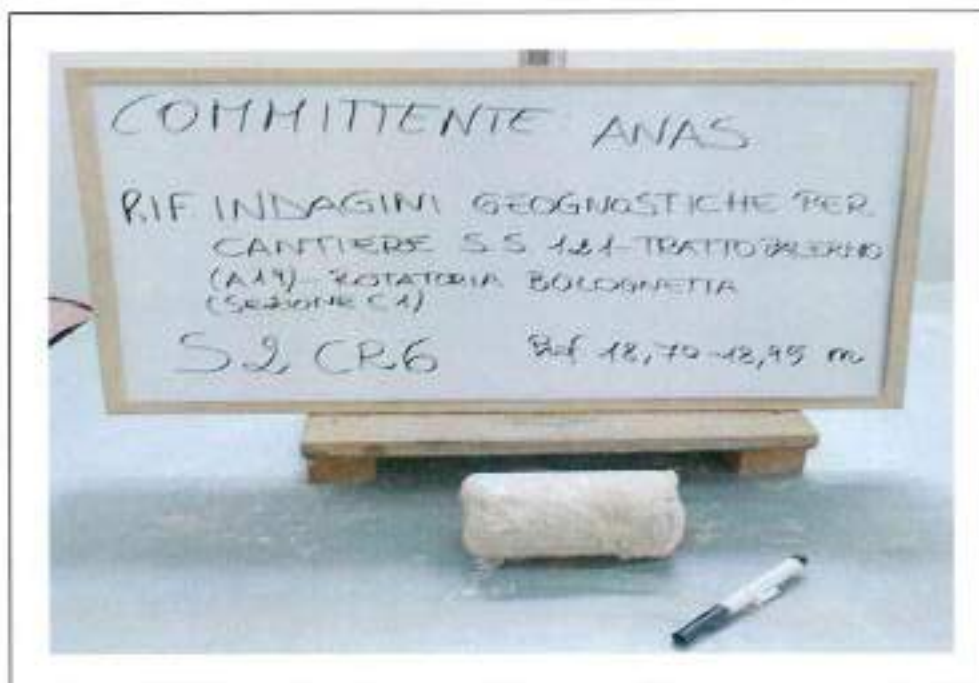 COMMITTENTE ANAS
RIF INDAGINI GEOGNOSTICHE PER
CANTIERE S.S 121-TRATTO PALERMO
(A19)-ROTATORIA BOLOGNETTA
(SEZIONE C1)
S2 CR6 18,70-18,95 m